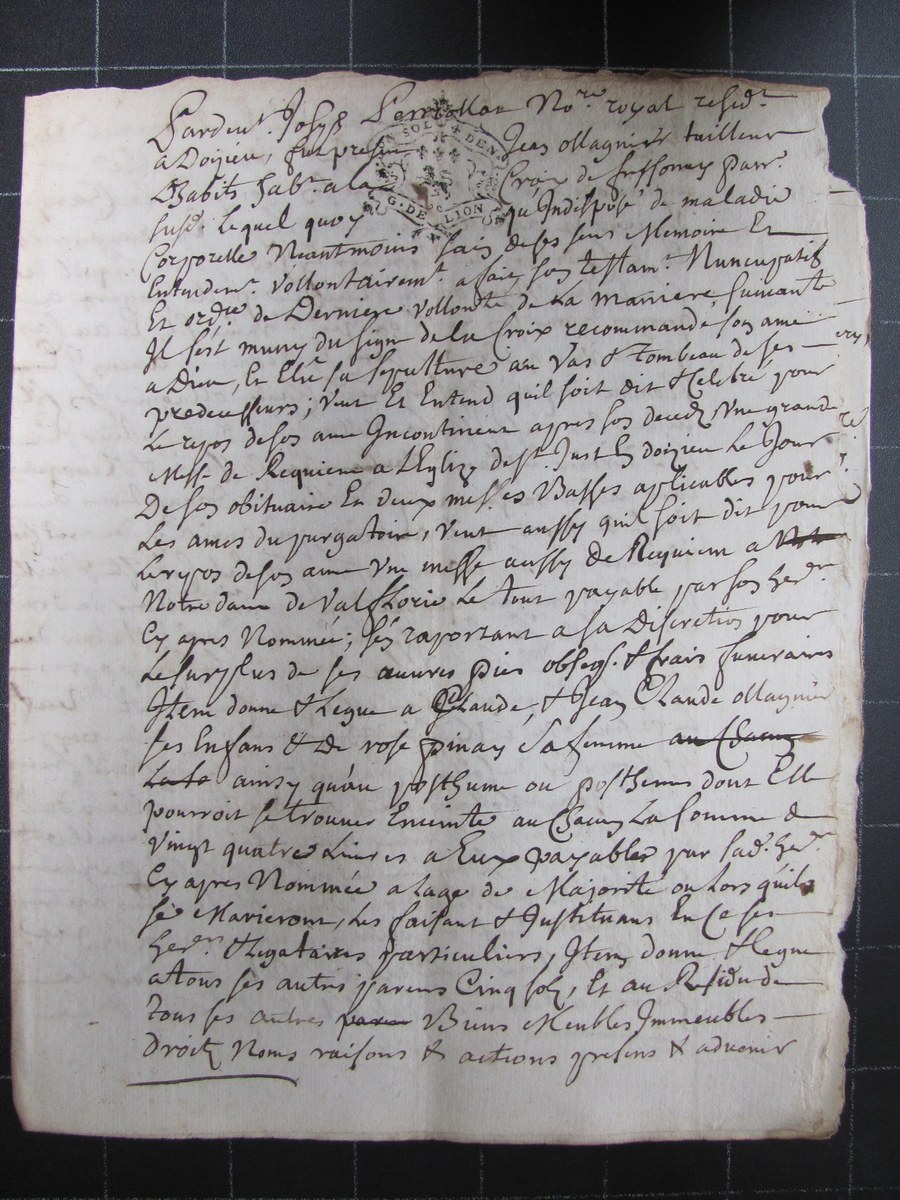 Pardevt. Joseph Perrollat Nore. royal residt.
a Doizieu, fut present Jean Ollagnier tailleur
Dhabits habt. a la Croix de fessonny parr.
susd. Lequel quoy qu'Indisposé de maladie
Corporelle Neantmoins sain de ses sens Memoire Et
Entendemt. vollontairemt. a fait son testamt. Nuncupatif
Et ordre. de Derniere vollonté de La maniere suivante
Il s'est muny du signe de la Croix recommandé son ame
a Dieu, Et Elû sa sepulture au Vas & tombeau de ses
predecesseurs; veut Et Entend quil soit dit & Celebré pour
Le repos de son ame Incontinent apres son decedz Vne grande
Messe de Requiem a L'Eglize de st. Just En doizieu Le Jour
De son obituaire En deux messes Basses aplicables pour
Les ames du purgatoire, veut aussy quil soit dit pour
Le repos de son ame Vne messe aussy de Requiem a
Notre dame de Valflorie Le tout payable par son her.
Cy apres Nommée; s'en raportant a sa Discretion pour
Le surplus de ses œuvres pies obseq. & frais funeraires
Item donne & Legue a Claude, & Jean Claude Ollagnier
ses Enfans & de rose pinay sa femme au Chacun
La so ainsy qu'au posthume ou posthemes dont Elle
pourroit se trouver Enceinte au Chacun La somme de
Vingt quatre Livres a Eux payables par sad. her.
Cy apres Nommée a Lage de Majorité ou Lors quils
se Marieront, Les faisant & Instituans En Ce ses
hers. & Legataires particuliers, Item donne & Legue
a tous ses autres parens Cinq solz, Et au Residu de
tous ses autres paren Biens Meubles Immeubles
Droitz Noms raisons & actions presens & advenir
G. DE LION